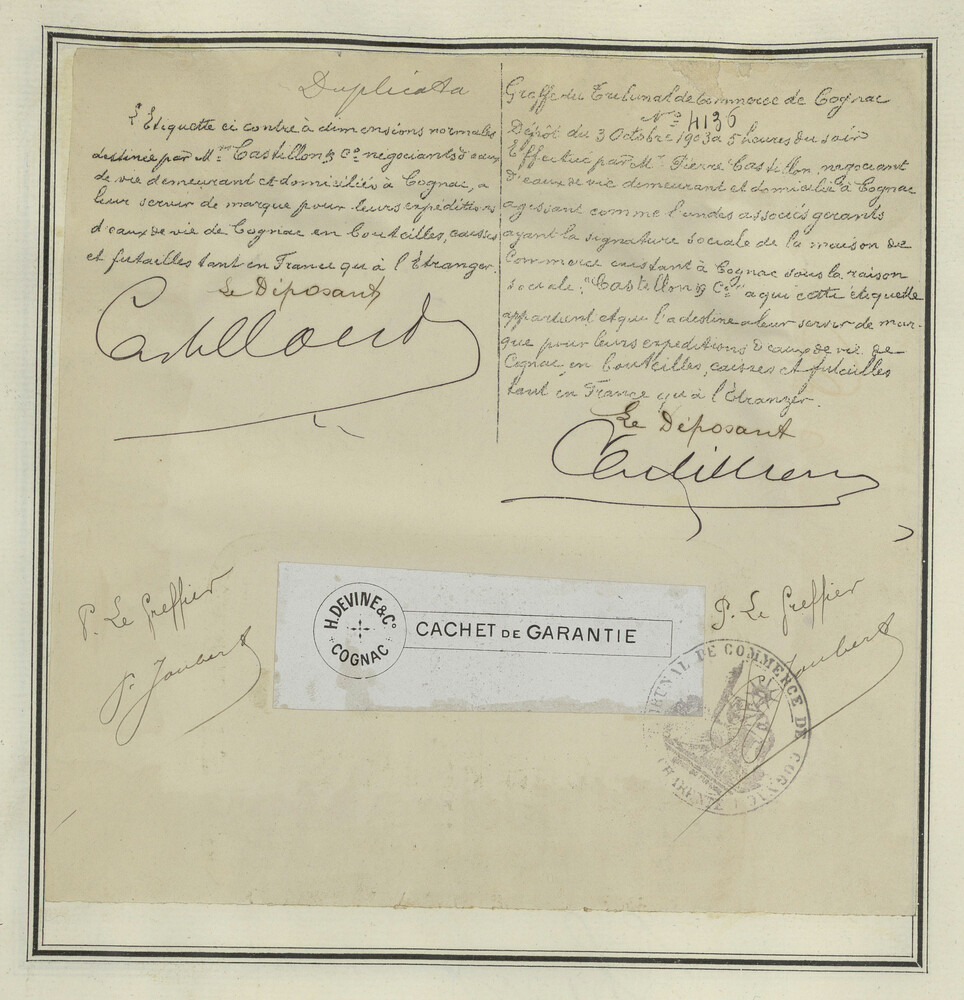 Duplicata
L'Etiquette ci contre à dimensions normales
destinée par Mrs Castillon & Co négociants d'eaux
de vie demeurant et domiciliés à Cognac, a
leur servir de marque pour leurs expéditions
d'eaux de vie de Cognac en bouteilles, caisses
et futailles tant en France qu'à l'Etranger.
Le Déposant
Greffe du Tribunal de Commerce de Cognac
No 4136
Dépôt du 3 Octobre 1903 à 5 heures du soir
Effectué par Mr Pierre Castillon, négociant
d'eaux de vie demeurant et domicilié à Cognac
agissant comme l'un des associés gérants
ayant la signature sociale de la maison de
Commerce existant à Cognac sous la raison
sociale: "Castillon & Co" a qui cette étiquette
appartient et qui l'a destine a leur servir de mar-
que pour leurs expéditions d'eaux de vie de
Cognac en bouteilles, caisses et futailles
tant en France qu'à l'Etranger.
Le Déposant
P. Le Greffier
P. Joubert
H. DEVINE & Co
COGNAC
CACHET DE GARANTIE
P. Le Greffier
Joubert
TRIBUNAL DE COMMERCE DE COGNAC